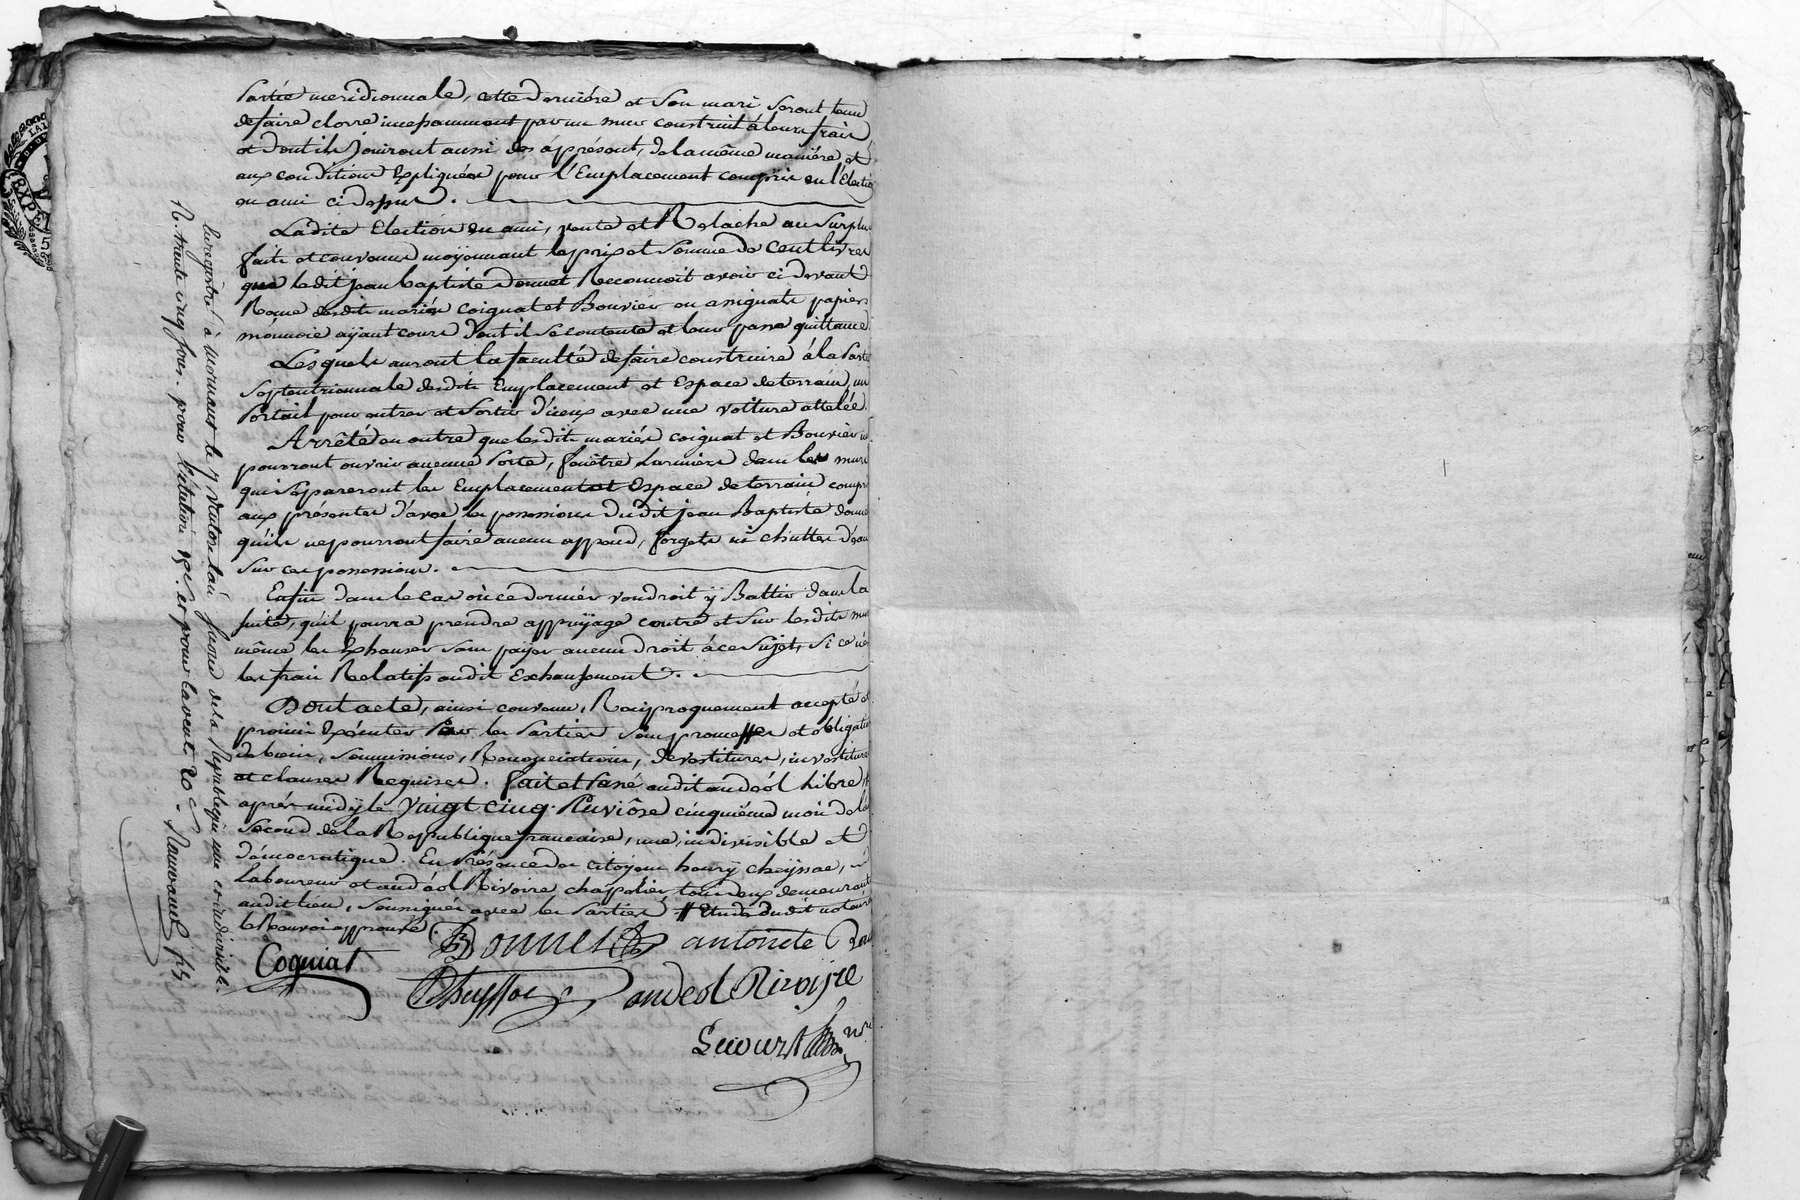 Partie meridionnale, cette dernière et Son mari Seront tenu
de faire clorre incessamment par un mur construit à leurs frais
et dont ils Jouiront aussi dès àprésent, de la même manière et
aux conditions Expliquées pour l'Emplacement compris en l'Electio
en ami ci dessus.
Ladite Election en ami, vente et Relache au Surplus
faite et convenue moÿennant le prix et Somme de Cent livres
que ledit jean baptiste donnet Reconnoit avoir ci devant
Receu desdits mariés coignat et Bouvier en assignats papiers
monnoie aÿant cours dont il Se contente et leur passe quittance.
Lesquels auront la faculté de faire construire à la Partie
Septentrionnale desdits Emplacement et Espace de terrain, un
Portail pour entrer et Sortir d'iceux avec une voiture attelée.
Arrêté en outre que lesdits mariés coignat et Bouvier ne
pourront ouvrir aucune Porte, fenêtre Larmiers dans les murs
qui Sépareront les Emplacement et Espace de terrain compris
aux présentes d'avec les possessions dudit jean Baptiste donnet
qu'ils ne pourront faire aucun append, forgets ni chuttes d'eau
Sur ces possessions.
Enfin dans le cas où ce dernier voudroit ÿ Battir dans la
suite, qu'il pourra prendre appuÿage contre et Sur lesdits murs
même les Exhausser sans paÿer aucun droit à ce Sujet, Si ce n'est
les frais Relatifs audit Exhaussement.
Dont acte, ainsi convenu, Réciproquement accepté et
promis Exécuter Par les Parties Sous promesses et obligation
de biens, Soumissions, Renonciations, devestitures, investitures
et clauses Requises. fait et Passé audit andéol Libre
après midÿ le Vingt cinq Pluviôse cinquième mois de l'an
Second de la République française, une, indivisible et
démocratique. En Présence des citoÿens henrÿ cheÿssac,
Laboureur et andéol Rivoire chapelier tous deux demeurants
audit lieu, Soussignés avec les Parties # Etude dudit notaire
le Renvoi approuvé.
Donnet antoinete
Cogniat
Cheyssac andeol Rivoire
Lecourt
Enregistré à mornant le 7 Ventose l'an second de la République une et indivisible.
R. trente cinq sous. pour l'élection 15s. et pour la vente 20s.